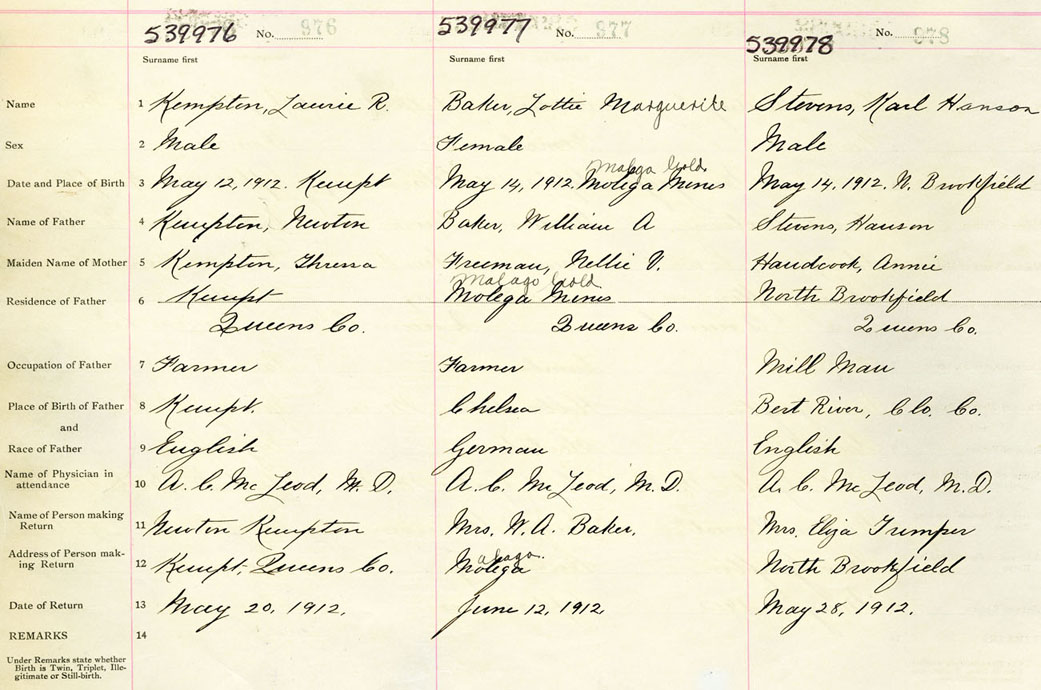 539976 No. 976 539977 No. 977 539978 No. 978
Surname first Surname first Surname first
Name 1 Kempton, Laurie R. Baker, Lottie Marguerite Stevens, Karl Hanson
Sex 2 Male Female Male
Malaga Gold
Date and Place of Birth 3 May 12, 1912. Kempt May 14, 1912 Molega Mines May 14, 1912, N. Brookfield
Name of Father 4 Kempton, Newton Baker, William A Stevens, Hanson
Maiden Name of Mother 5 Kempton, Thressa Freeman, Nellie V. Handcook, Annie
Malago Gold
Residence of Father 6 Kempt Molega Mines North Brookfield
Queens Co. Queens Co. Queens Co.
Occupation of Father 7 Farmer Farmer Mill Man
Place of Birth of Father 8 Kempt. Chelsea Bert River, Clo. Co.
and
Race of Father 9 English German English
Name of Physician in
attendance 10 A. C. McLeod, M. D. A. C. McLeod, M. D. A. C. McLeod, M. D.
Name of Person making
Return 11 Newton Kempton Mrs. W. A. Baker. Mrs. Eliza Trumper
Address of Person mak-
ing Return 12 Kempt, Queens Co. Molega alaga. North Brookfield
Date of Return 13 May 20, 1912. June 12, 1912 May 28, 1912.
REMARKS 14
Under Remarks state whether
Birth is Twin, Triplet, Ille-
gitimate or Still-birth.